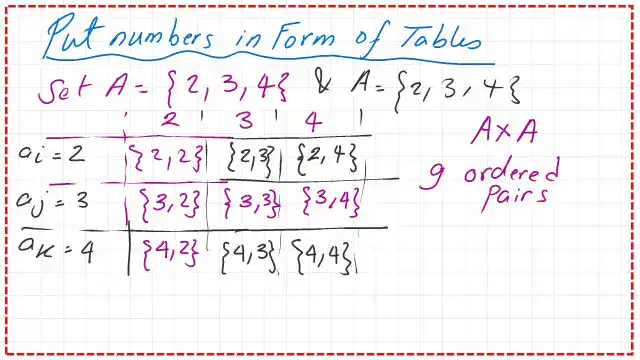 Put numbers in Form of Tables
Set A = {2, 3, 4} & A = {2, 3, 4}
2 3 4
A x A
ai = 2 {2,2} {2,3} {2,4}
9 ordered
Pairs
aj = 3 {3,2} {3,3} {3,4}
aK = 4 {4,2} {4,3} {4,4}